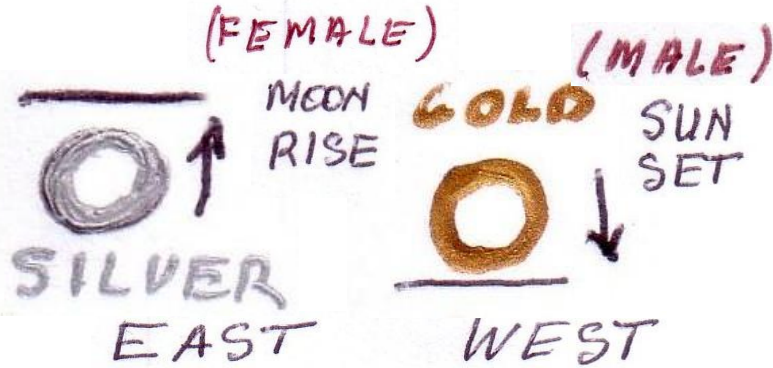 (FEMALE)
MOON
RISE
SILVER
EAST
(MALE)
GOLD
SUN
SET
WEST